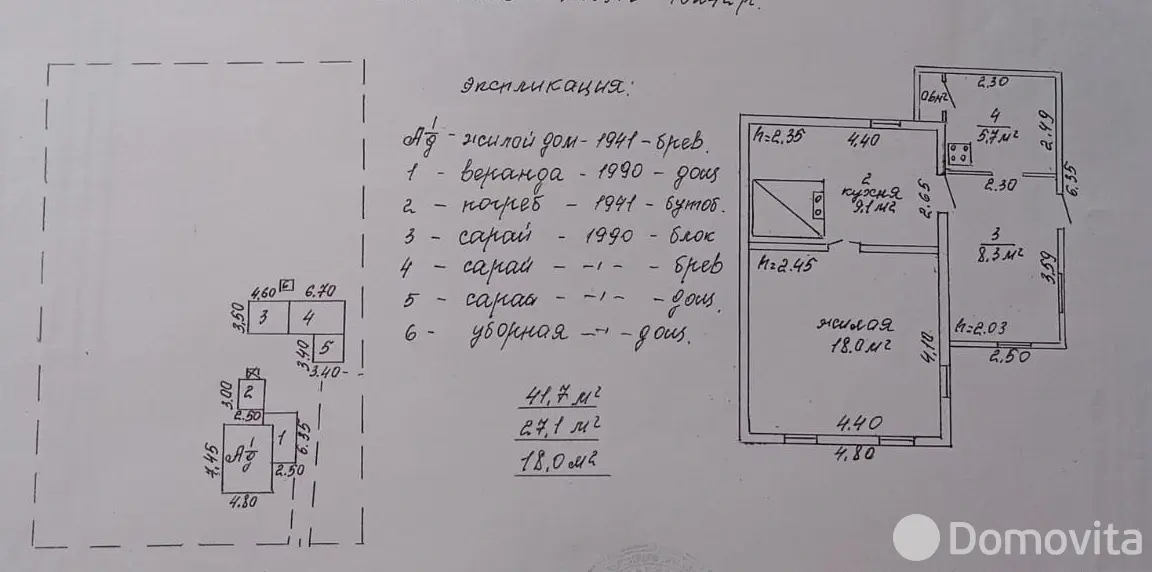 экспликация:
А 1/д - жилой дом - 1941 - брев.
1 - веранда - 1990 - дощ
2 - погреб - 1941 - бутоб.
3 - сарай - 1990 - блок
4 - сарай - -ı- - брев
5 - сарай - -ı- - дощ.
6 - уборная -ı- - дощ.
41,7 м²
27,1 м²
18,0 м²
6
4.60 6.70
3,50 3 4
3.40 5
3.40
3.00 2
2.50
7,45 А 1/д 1 6.35
2.50
4.80
h=2.35 4,40
2
кухня
9,1 м²
2.65
h=2.45
жилая
18.0 м²
4,10
4.40
4.80
0.6 м² 2.30
4
5,7 м²
2.49
2.30
6,35
3
8,3 м²
3,59
h=2.03
2.50
Domovita